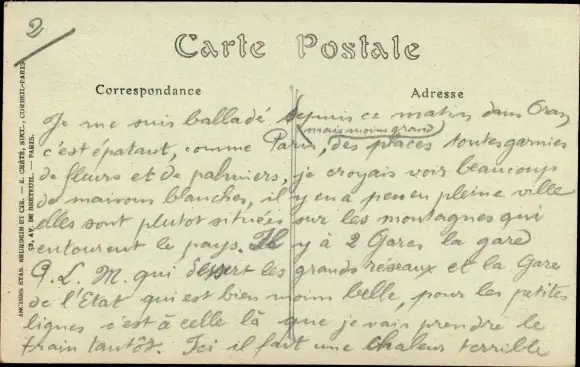 2
Carte Postale
Correspondance
Adresse
Je me suis balladé depuis ce matin dans Oran
(mais moins grand)
c'est épatant, comme Paris, des places toutes garnies
de fleurs et de palmiers, je croyais voir beaucoup
de maisons blanches, il y en a peu en pleine ville
elles sont plutot situées sur les montagnes qui
entourent le pays. Il y à 2 Gares la gare
P. L. M. qui dessert les grands réseaux et la Gare
de l'Etat qui est bien moins belle, pour les petites
lignes c'est à celle là que je vais prendre le
train tantôt. Ici il fait une chaleur terrible
ANCIENS ETAB. NEURDEIN ET CIE. — E. CRÉTÉ, SUCC., CORBEIL-PARIS
52, AV. DE BRETEUIL. — PARIS.